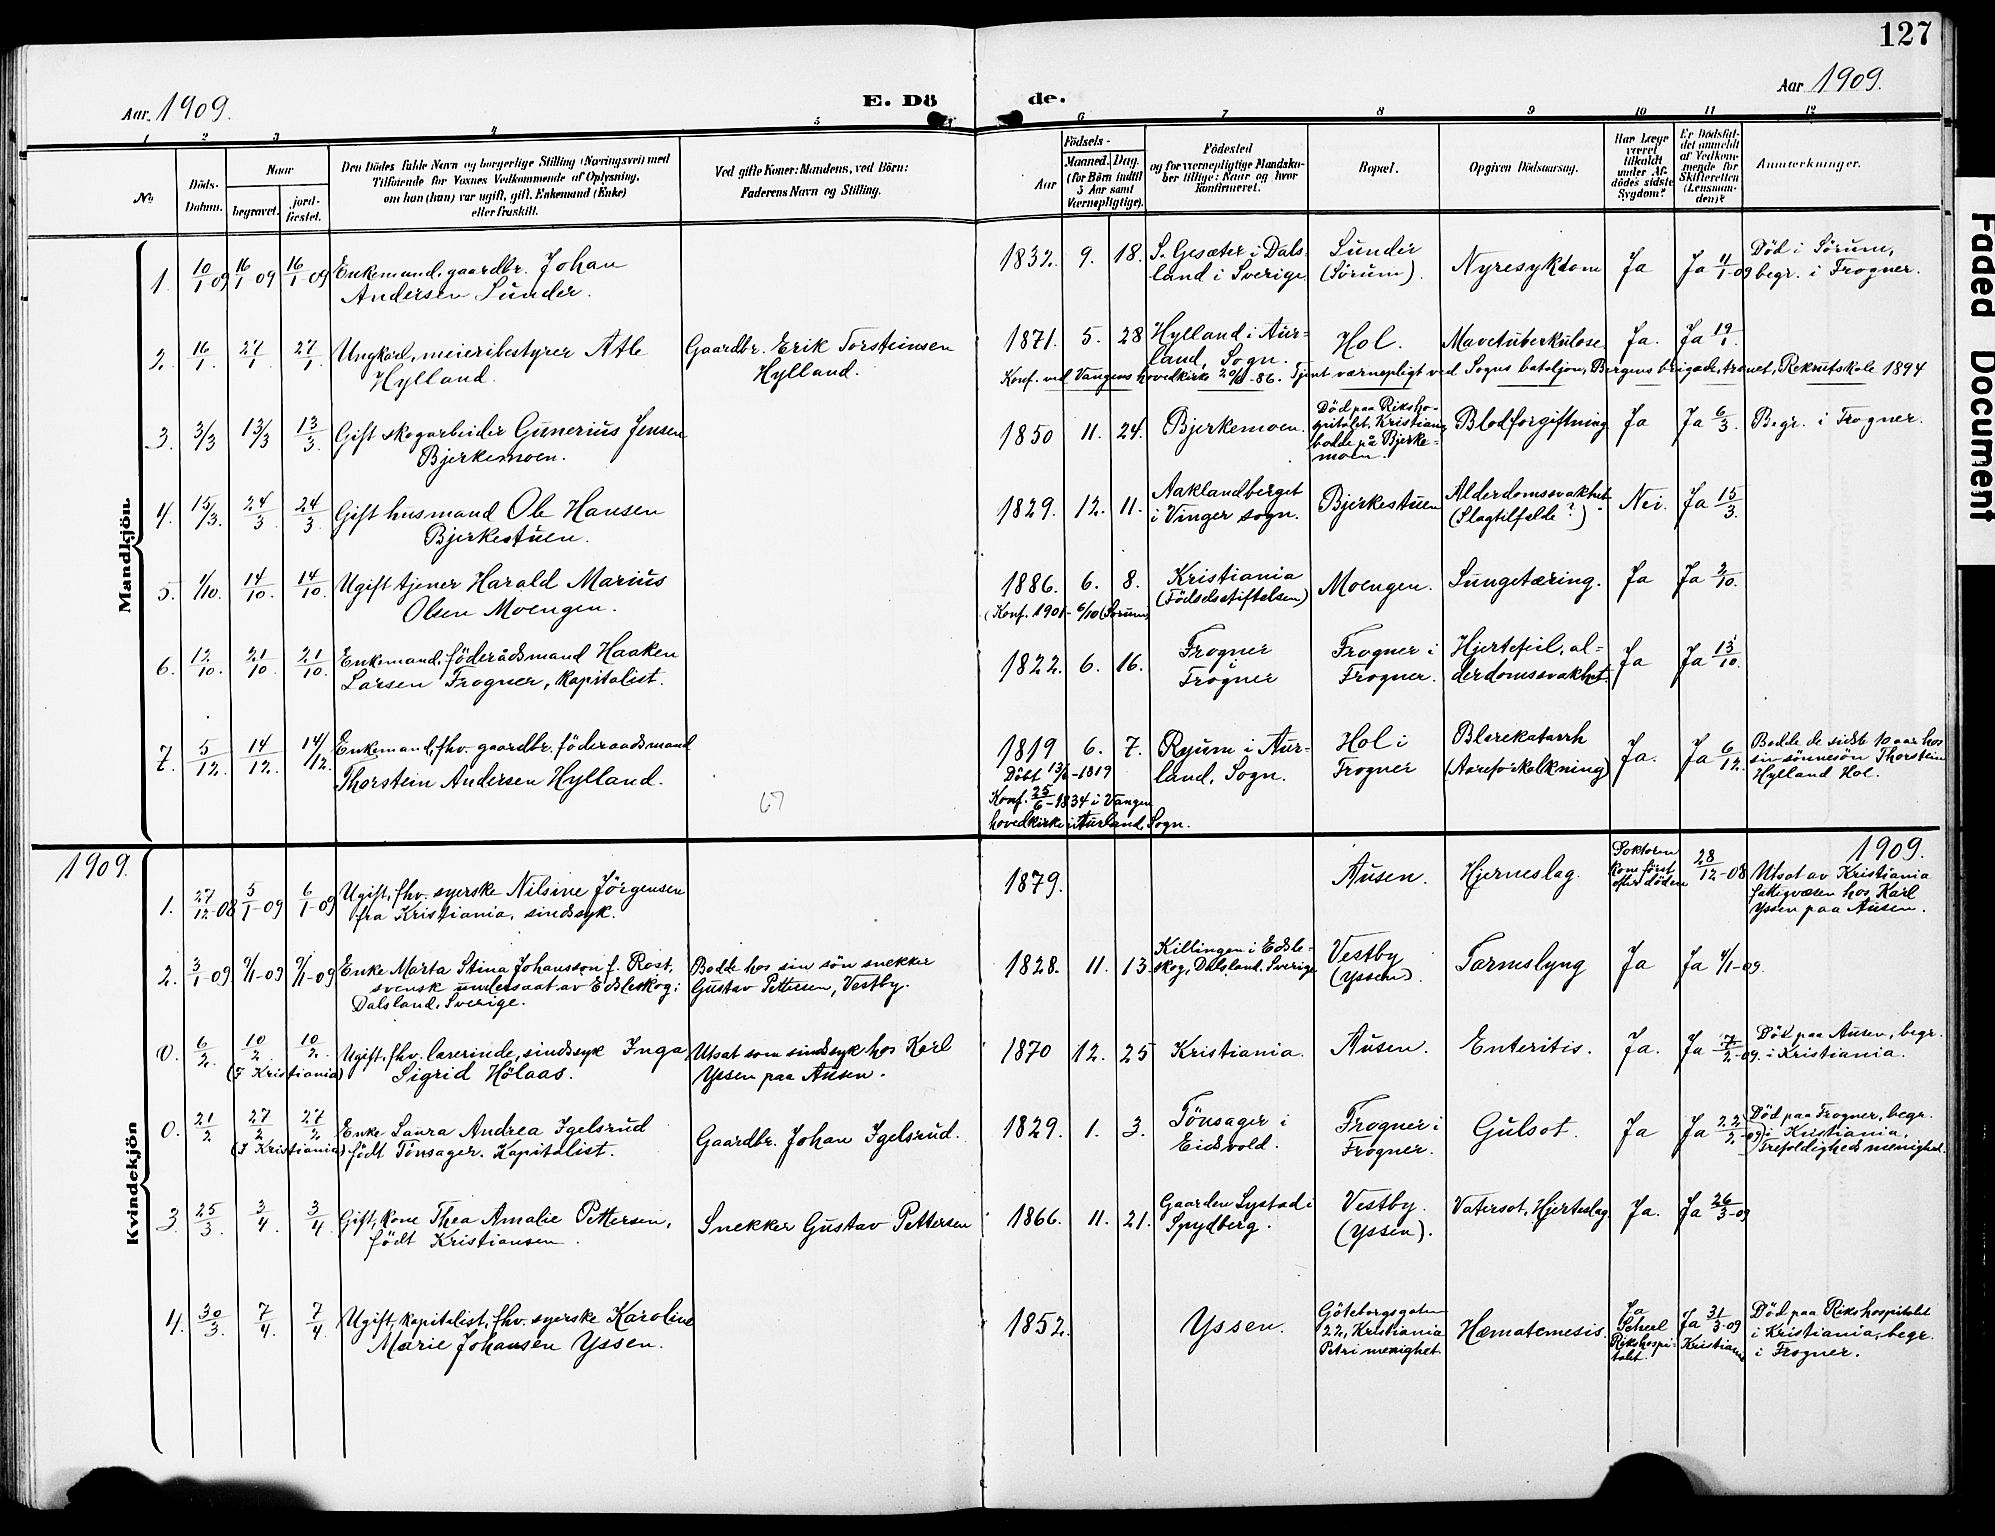 127
Aar 1909.
E. Dö de.
Aar 1909.
1 2 3 4 5 6 7 8 9 10 11 12
No
Döds-Datum.
Naar
begravet.
jord-fæstet.
Den Dödes fulde Navn og borgerlige Stilling (Næringsvei) med
Tilföiende for Voxnes Vedkommende af Oplysning,
om han (hun) var ugift, gift, Enkemand (Enke)
eller fraskilt.
Ved gifte Koner: Mandens, ved Börn:
Faderens Navn og Stilling.
Födsels-
Aar
Maaned. Dag.
(for Börn indtil
5 Aar samt
Værnepligtige).
Födested
og for værnepligtige Mandska-
ber tillige: Naar og hvor
konfirmeret.
Bopæl.
Opgiven Dödsaarsag.
Har Læge
været
tilkaldt
under Af-
dödes sidste
Sygdom?
Er Dödsfal-
det anmeldt
af Vedkom-
mende for
Skifteretten
(Lensman-
den)?
Anmærkninger.
Mandkjön.
1. 10/1 09 16/1 09 16/1 09 Enkemand, gaardbr. Johan
Andersen Sunder.
1832. 9. 18. S. Gesæter i Dals-
land i Sverige.
Sunder
(Sörum).
Nyresykdom Ja Ja 11/1-09
Död i Sörum,
begr. i Frogner.
2. 16/1. 27/1 27/1. Ungkarl, meieribestyrer Atle
Hylland.
Gaardbr. Erik Torsteinsen
Hylland.
1871. 5. 28 Hylland i Aur-
land, Sogn.
Hol. Mavetuberkulose Ja. Ja 19/1.
Konf. ved Vangens hovedkirke -86. Tjent værnepligt ved Sogns bataljon, Bergens brigade, trænet, Rekrutskole 1894
3. 3/3 13/3 13/3. Gift skogarbeider Gunerius Jensen
Bjerkemoen.
1850 11. 24. Bjerkemoen.
Död paa Riksho-
spitalet, Kristiania,
bodde på Bjerke-
moen.
Blodforgiftning Ja Ja 6/3. Begr. i Frogner.
4. 15/3. 24/3 24/3 Gift husmand Ole Hansen
Bjerkestuen.
1829. 12. 11. Aaklandberget
i Vinger sogn.
Bjerkestuen
Alderdomssvakhet
(Slagtilfælde?).
Nei. Ja 15/3.
5. 1/10. 14/10. 14/10. Ugift tjener Harald Marius
Olsen Moengen.
1886. 6. 8. Kristiania
(Födselsstiftelsen)
(Konf. 1901 - 6/10 (Sörum)
Moengen. Lungetæring. Ja Ja 2/10.
6. 12/10. 21/10 21/10. Enkemand, föderådsmand Haaken
Larsen Frogner, kapitalist.
1822. 6. 16. Frogner
i Frogner
Frogner i
Frogner.
Hjertefeil, al-
derdomssvakhet.
Ja Ja 13/10.
7. 5/12. 14/12. 14/12. Enkemand, fhv. gaardbr. föderaadsmand
Thorstein Andersen Hylland.
67
1819 6. 7. Ryum i Aur-
land, Sogn.
Döbt 13/6-1819
Konf. 25/6-1834 i Vangen
hovedkirke i Aurland, Sogn.
Hol i
Frogner
Blærekatarrh
(Aareforkalkning)
Ja. Ja 6/12.
Bodde de sidste 10 aar hos
sin sönnesön Thorstein
Hylland Hol.
1909.
1909.
Kvindekjön
1. 27/12-08 5/1-09 6/1-09 Ugift, fhv. syerske Nilsine Jörgensen
fra Kristiania, sindssyk.
1879.
Ausen. Hjerneslag.
Doktoren
kom först
efter döden
28/12-08
Utsat av Kristiania
fattigvæsen hos Karl
Yssen paa Ausen.
2. 3/1-09 9/1-09 9/1-09 Enke Marta Stina Johansson f. Rost,
svensk undersaat av Edsleskog i
Dalsland, Sverige.
Bodde hos sin sön snekker
Gustav Pettersen, Vestby.
1828. 11. 13. Killingen i Edsle-
skog, Dalsland, Sverige
Vestby
(Yssen).
Tarmslyng Ja Ja 4/1-09.
0. 6/2. 10/2. 10/2.
(I Kristiania)
Ugift, fhv. lærerinde, sindssyk Inga
Sigrid Hölaas.
Utsat som sindssyk hos Karl
Yssen paa Ausen.
1870 12. 25 Kristiania. Ausen. Enteritis. Ja. Ja 7/2-09.
Död paa Ausen, begr.
i Kristiania.
0. 21/2 27/2 27/2
(I Kristiania)
Enke Laura Andrea Igelsrud
födt Tönsager. Kapitalist.
Gaardbr. Johan Igelsrud.
1829. 1. 3. Tönsager i
Eidsvold.
Frogner i
Frogner.
Gulsot. Ja Ja 22/2-09
Död paa Frogner, begr.
i Kristiania,
Trefoldigheds menighed.
3. 25/3. 3/4 3/4 Gift, kone Thea Amalie Pettersen,
födt Kristiansen.
Snekker Gustav Pettersen
1866. 11. 21. Gaarden Lystad i
Spydberg.
Vestby.
(Yssen).
Vatersot, Hjerteslag Ja. Ja 26/3-09
4. 30/3. 7/4. 7/4 Ugift, kapitalist, fhv. syerske Karoline
Marie Johansen Yssen.
1852. Yssen.
Göteborgsgaten
22, Kristiania
Petri menighet.
Hæmatemesis.
Ja
Scheel
Rikshospi-
talet.
Ja 31/3-09
Kristiania
Död paa Rikshospitalet
i Kristiania, begr.
i Frogner.
Faded Document